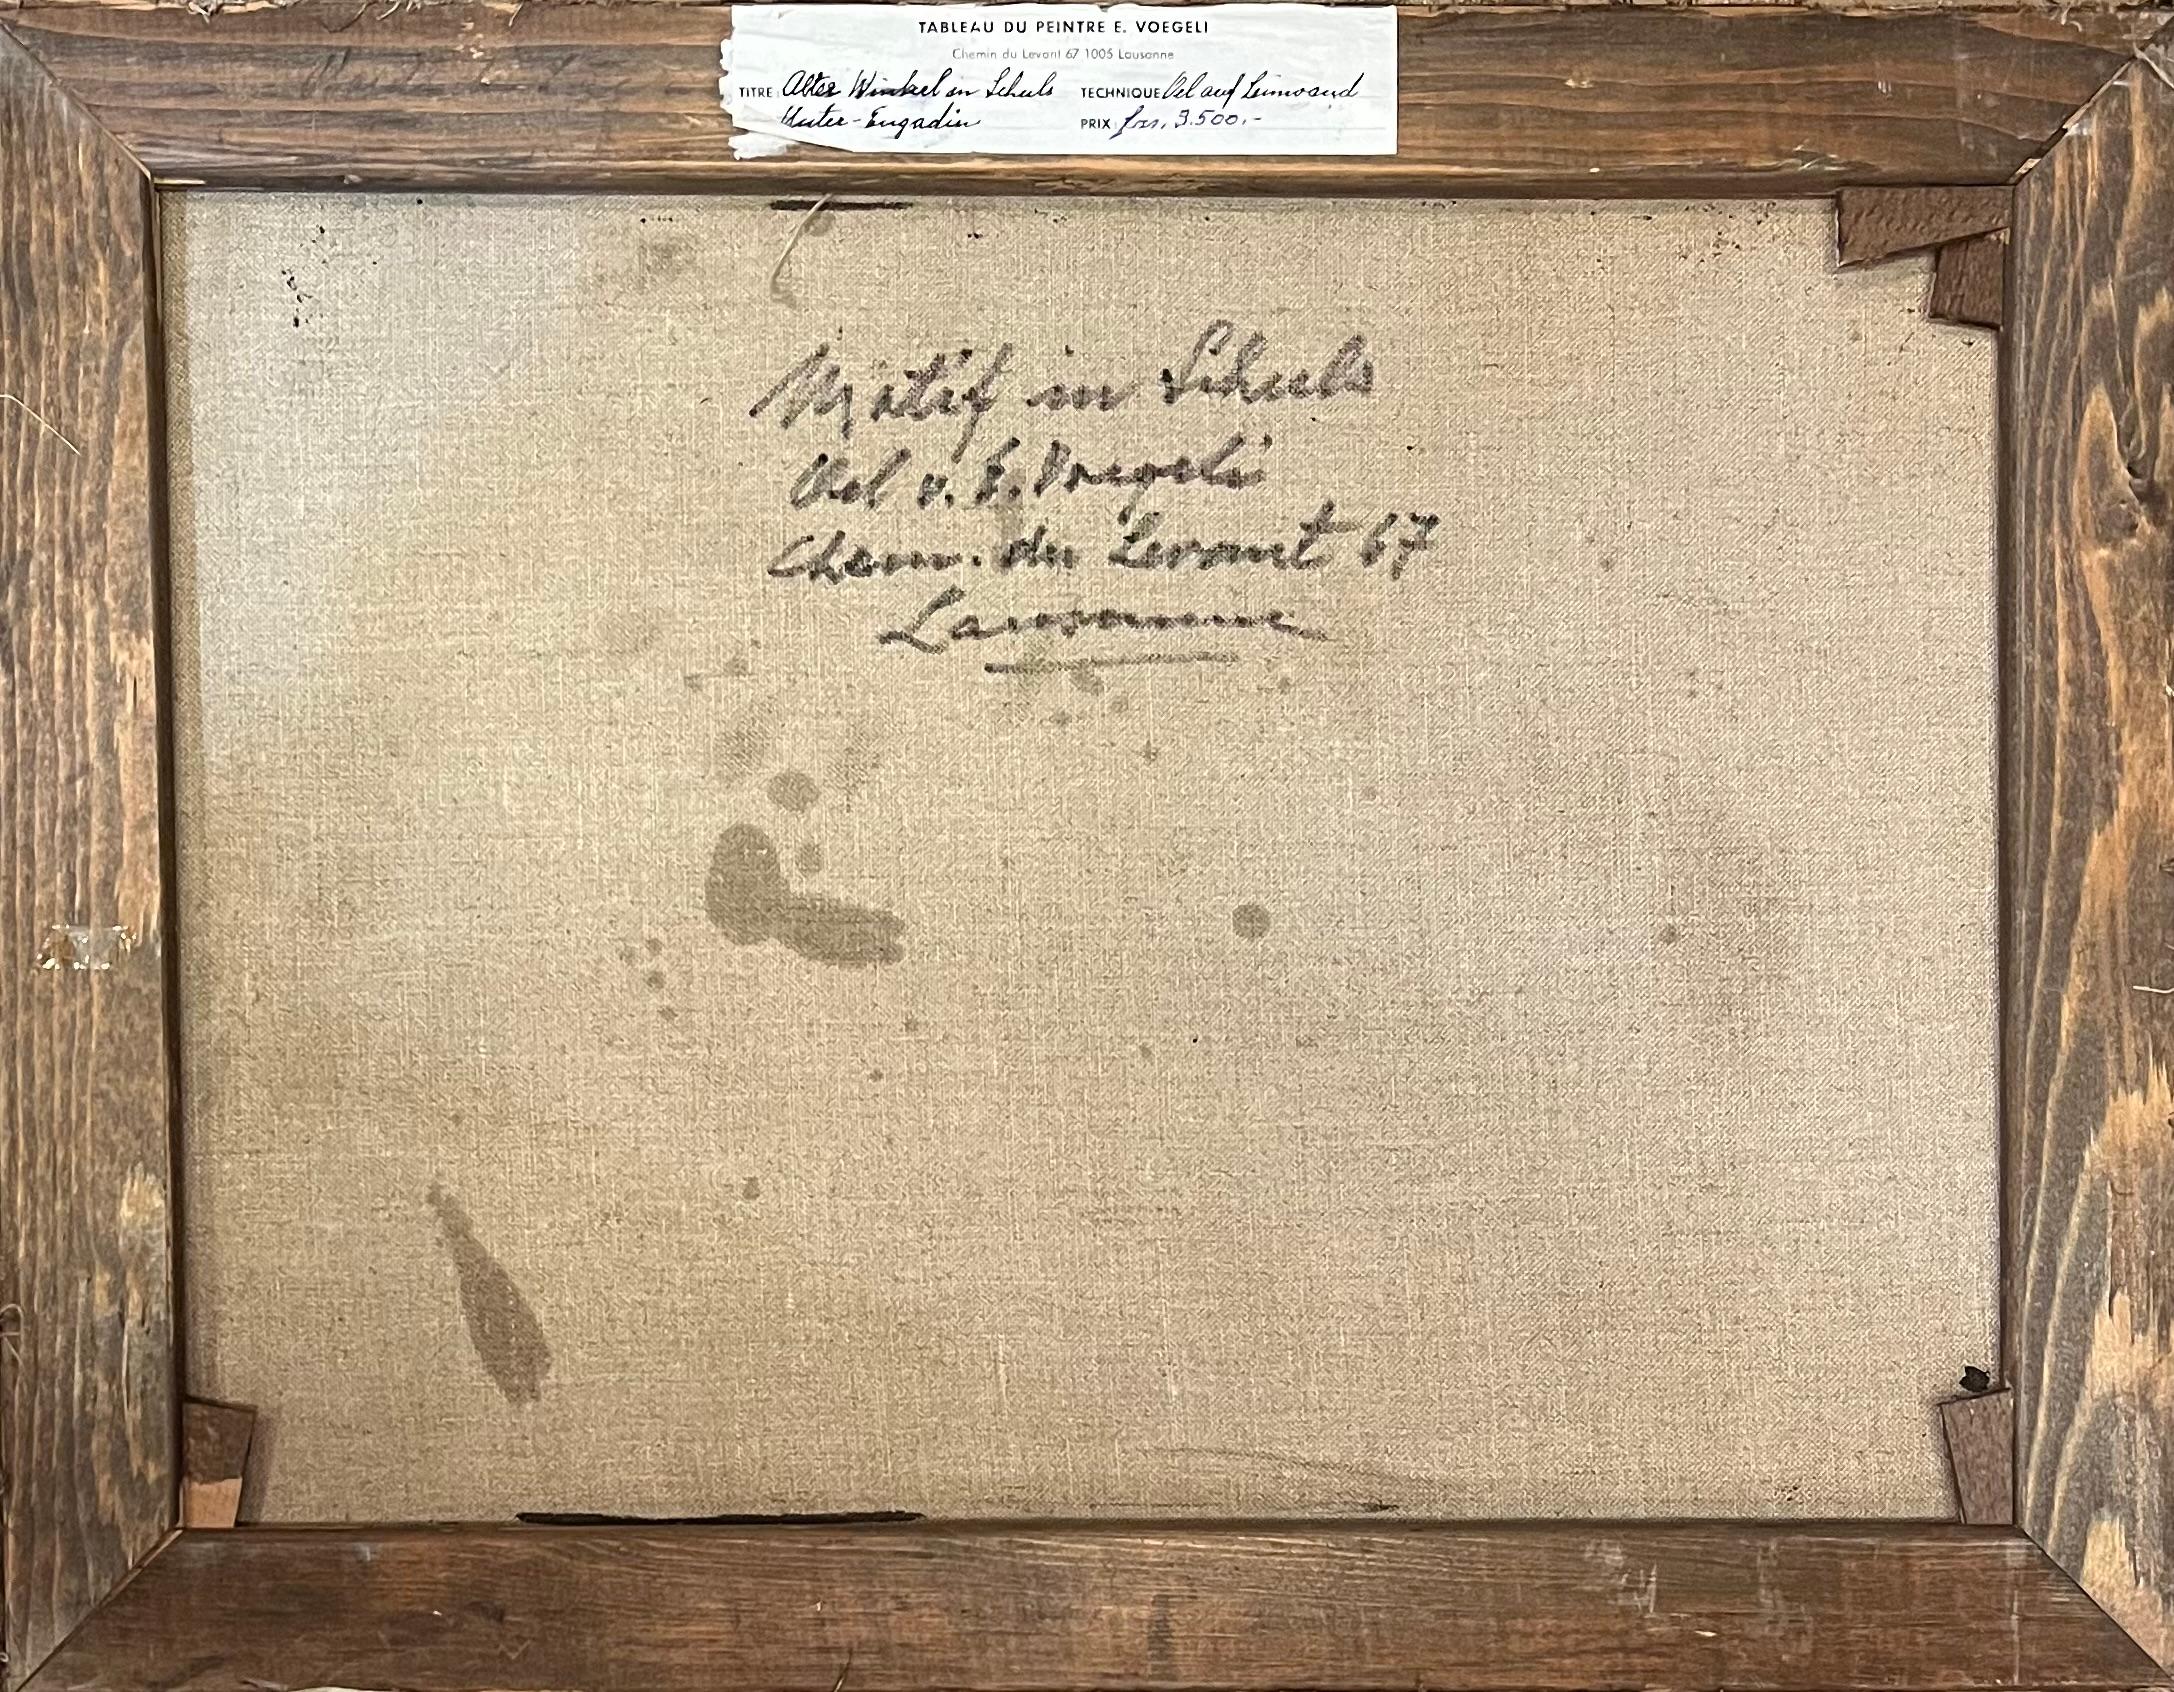 TABLEAU DU PEINTRE E. VOEGELI
Chemin du Levant 67 1005 Lausanne
TITRE: Alter Winkel in Schuls
Unter-Engadin
TECHNIQUE Oel auf Leinwand
PRIX: frs. 3.500.-
Motif in Schuls
Oel v. E. Voegeli
Chem. du Levant 67
Lausanne